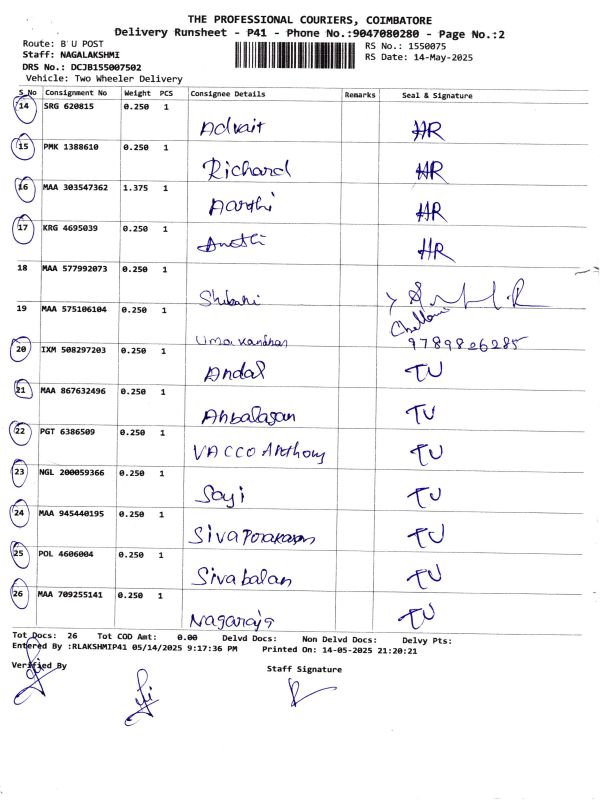 THE PROFESSIONAL COURIERS, COIMBATORE
Delivery Runsheet - P41 - Phone No.:9047080280 - Page No.:2
Route: B U POST
RS No.: 1550075
Staff: NAGALAKSHMI
RS Date: 14-May-2025
DRS No.: DCJB155007502
Vehicle: Two Wheeler Delivery
S_No Consignment No Weight PCS Consignee Details Remarks Seal & Signature
14 SRG 620815 0.250 1
Advait HR
15 PMK 1388610 0.250 1
Richard HR
16 MAA 303547362 1.375 1
Aarthi HR
17 KRG 4695039 0.250 1
HR
18 MAA 577992073 0.250 1
Shibani
19 MAA 575106104 0.250 1
Umakandhan 9789826285
20 IXM 508297203 0.250 1
Andal TU
21 MAA 867632496 0.250 1
Anbalagan TU
22 PGT 6386509 0.250 1
VACCO Anthony TU
23 NGL 200059366 0.250 1
Sayi TU
24 MAA 945440195 0.250 1
Sivaprakasam TU
25 POL 4606004 0.250 1
Sivabalan TU
26 MAA 709255141 0.250 1
Nagaraja TU
Tot Docs: 26 Tot COD Amt: 0.00 Delvd Docs: Non Delvd Docs: Delvy Pts:
Entered By :RLAKSHMIP41 05/14/2025 9:17:36 PM Printed On: 14-05-2025 21:20:21
Verified By Staff Signature